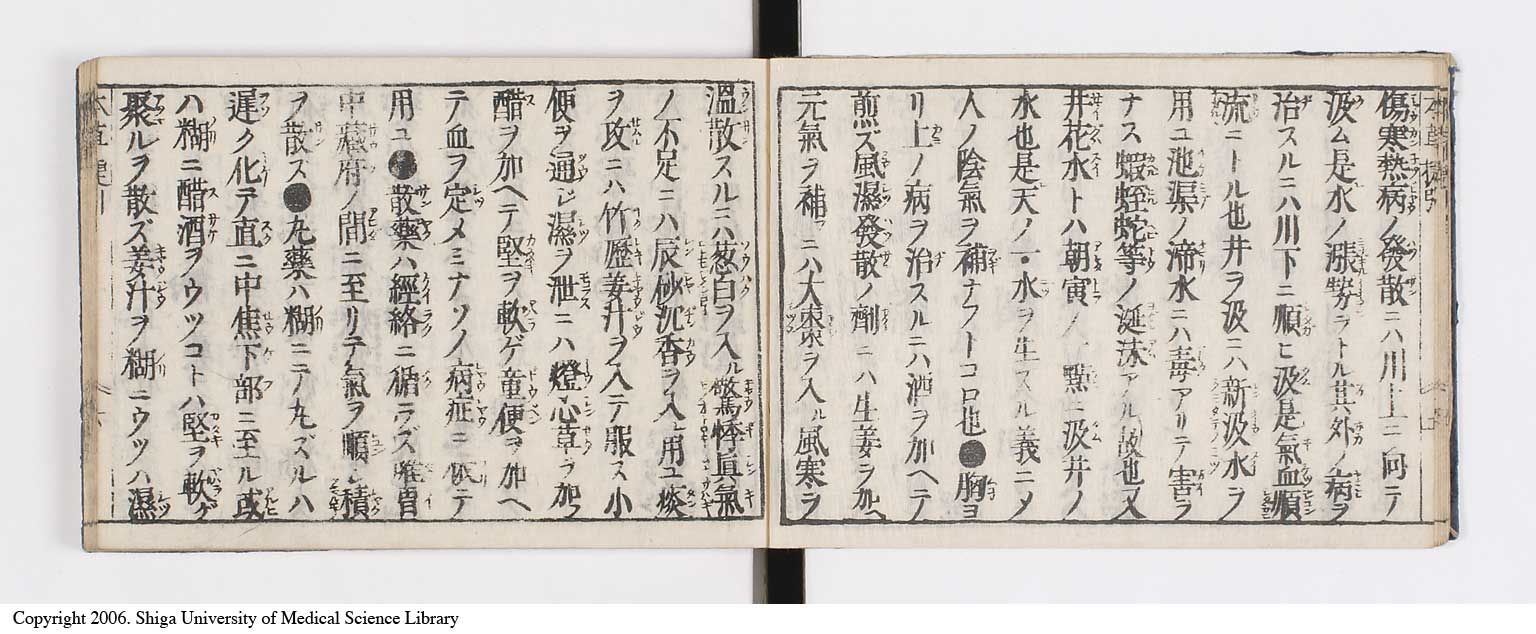 傷寒熱病ノ發散ニハ川上ニ向テ
汲ム是水ノ漲勢ヲトル其外ノ病ヲ
治スルニハ川下ニ順ヒ汲是氣血順
流ニトル也井ヲ汲ニハ新汲水ヲ
用ユ池渠ノ滯水ニハ毒アリテ害ヲ
ナス蝦蛭蛇等ノ涎沫アル故也又
井花水トハ朝寅ノ一點ニ汲井ノ
水也是天ノ一水ヲ生スル義ニメ
人ノ陰氣ヲ補ナフトコロ也●胸ヨ
リ上ノ病ヲ治スルニハ酒ヲ加ヘテ
煎ズ風濕發散ノ劑ニハ生姜ヲ加ヘ
元氣ヲ補フニハ大棗ヲ入ル風寒ヲ
溫散スルニハ葱白ヲ入ル驚悸眞氣
ノ不足ニハ辰砂沈香ヲ入用ユ痰
ヲ攻ニハ竹歷姜汁ヲ入テ服ス小
便ヲ通シ濕ヲ泄ニハ燈心草ヲ加フ
醋ヲ加ヘテ堅ヲ軟ゲ童便ヲ加ヘ
テ血ヲ定メミナソノ病症ニ依テ
用ユ●散藥ハ經絡ニ循ラズ唯胃
中藏府ノ間ニ至リテ氣ヲ順シ積
ヲ散ズ●丸藥ハ糊ニテ丸ズルハ
遲ク化テ直ニ中焦下部ニ至ル或
ハ糊ニ醋酒ヲウツコトハ堅ヲ軟ゲ
聚ルヲ散ズ姜汁ヲ糊ニウツハ濕
Copyright 2006. Shiga University of Medical Science Library